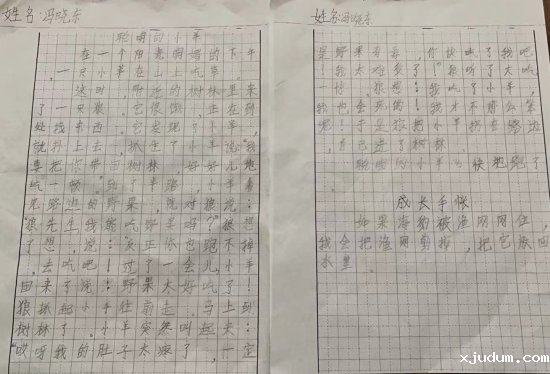 姓名:冯晓东
聪明的小羊
在一个阳光明媚的下午
,一只小羊在山上吃草,
这时,附近的树林里来
了一只狼。它很饿,正在到
处找东西。它发现了小羊,
就扑上去,抓住了小羊说:"我
要把你带回树林,好好儿地
吃一顿。"到了半路,小羊看
见路边的野果,就对狼说:
"狼先生我能吃野果吗?"狼想
了想,说:"反正你也跑不掉
,去吃吧!过了一会儿小羊
回来了说:野果太好吃了!
狼抓起小羊往前走。马上到
树林了。小羊突然叫起来:
"哎呀我的肚子太疼了,一定
姓名:冯晓东
是野果有毒,你快吃了我吧
!我太难受了!"狼听了大吃
一惊,狼想:我吃了小羊,
我也会死的!我才不那么笨
呢!于是狼把小羊扔在路边
,自己进了树林
聪明的小羊飞快地跑了
成长手帐
如果海豹被渔网网住,
我会把渔网剪掉,把它放回
水里。
xjudum.com